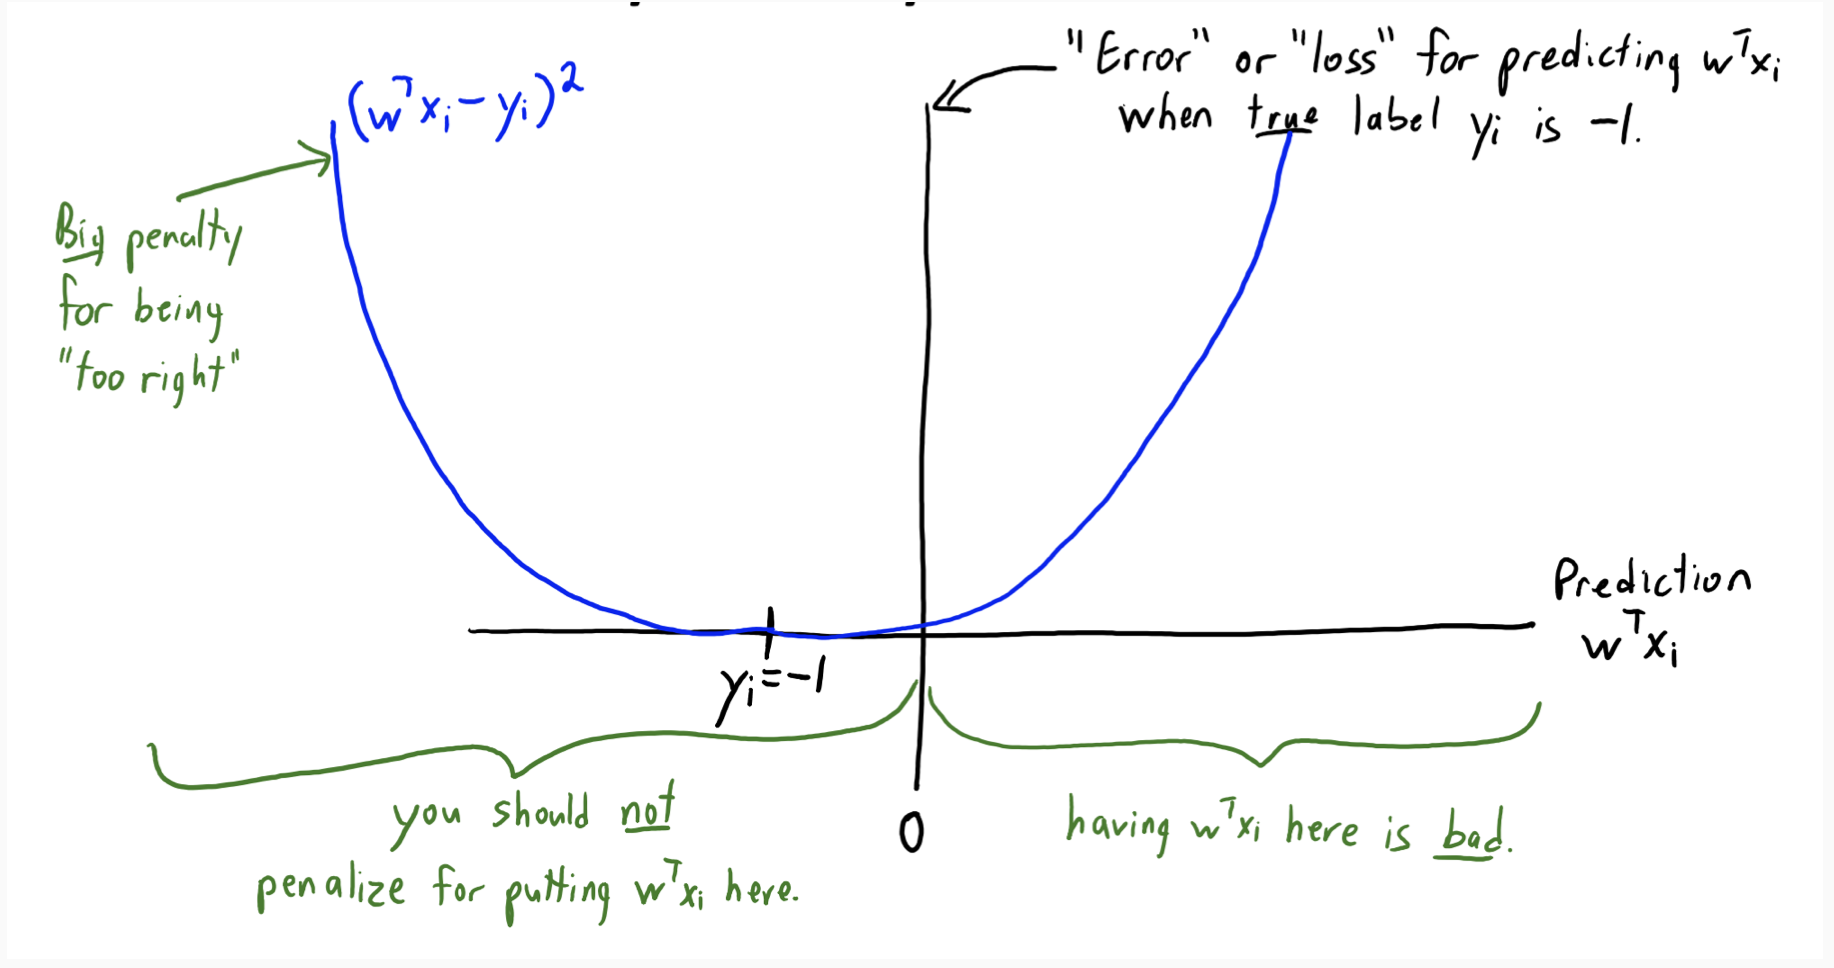 "Error" or "loss" for predicting wᵀxᵢ
when true label yᵢ is -1.
(wᵀxᵢ-yᵢ)²
Big penalty
for being
"too right"
Prediction
wᵀxᵢ
yᵢ=-1
0
you should not
penalize for putting wᵀxᵢ here.
having wᵀxᵢ here is bad.